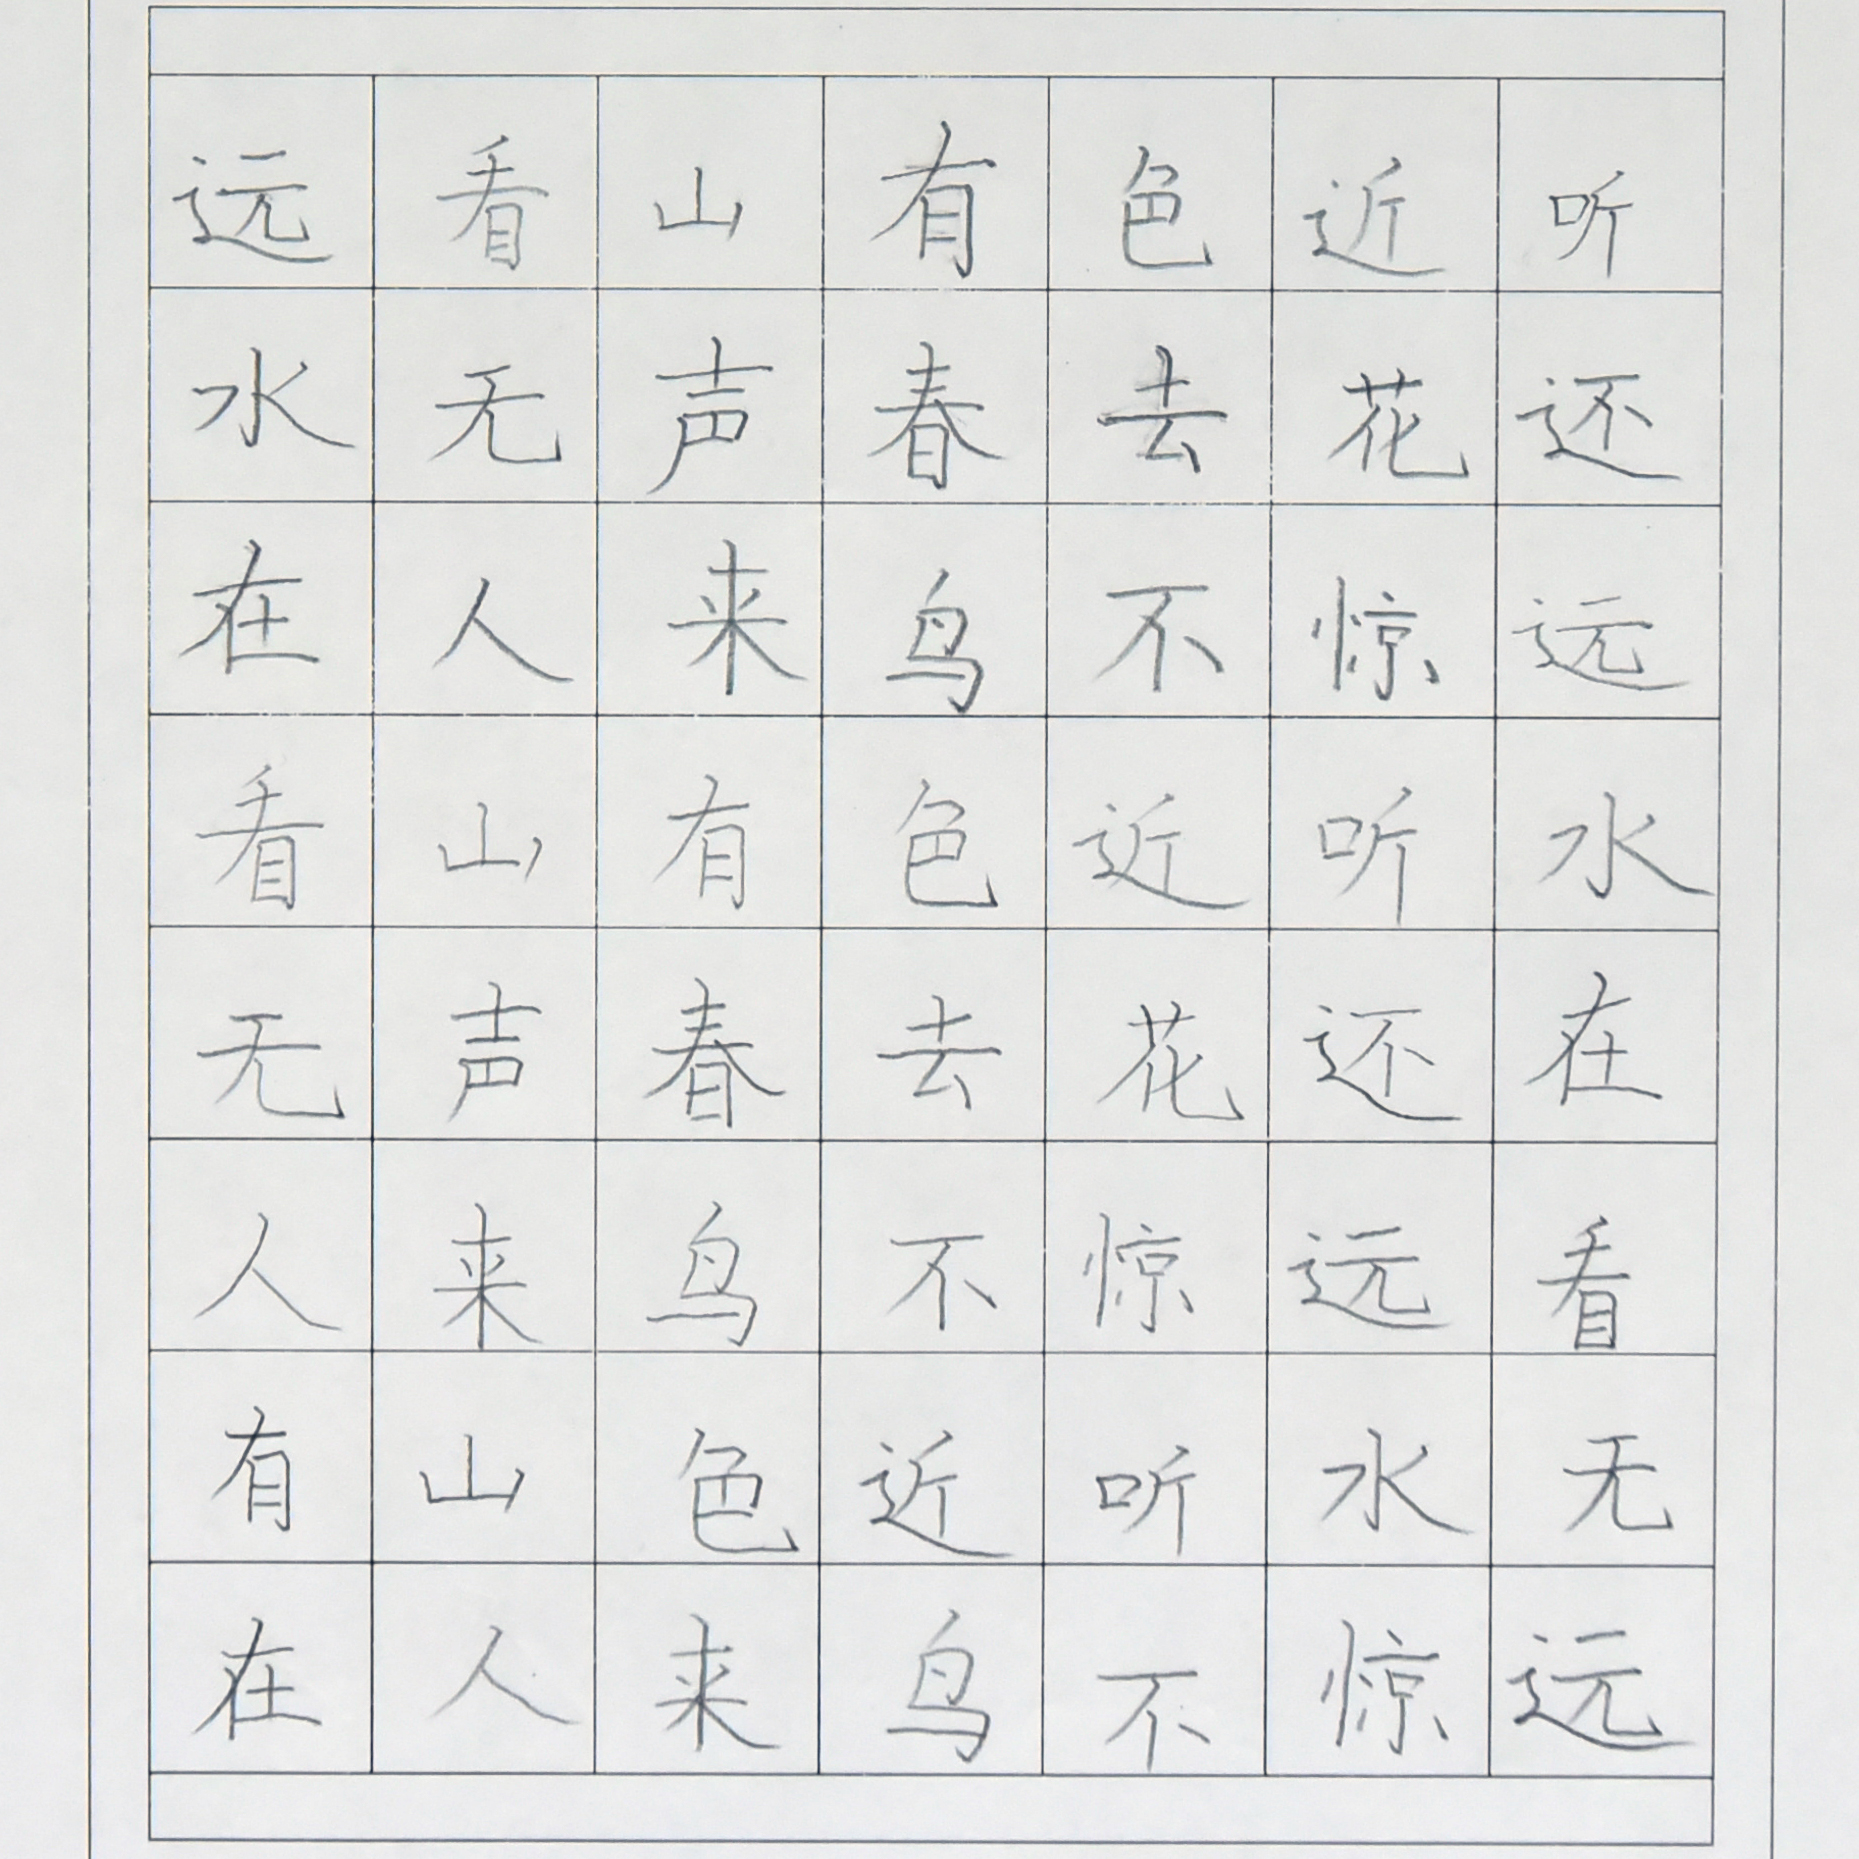 远看山有色近听
水无声春去花还
在人来鸟不惊远
看山有色近听水
无声春去花还在
人来鸟不惊远看
有山色近听水无
在人来鸟不惊远